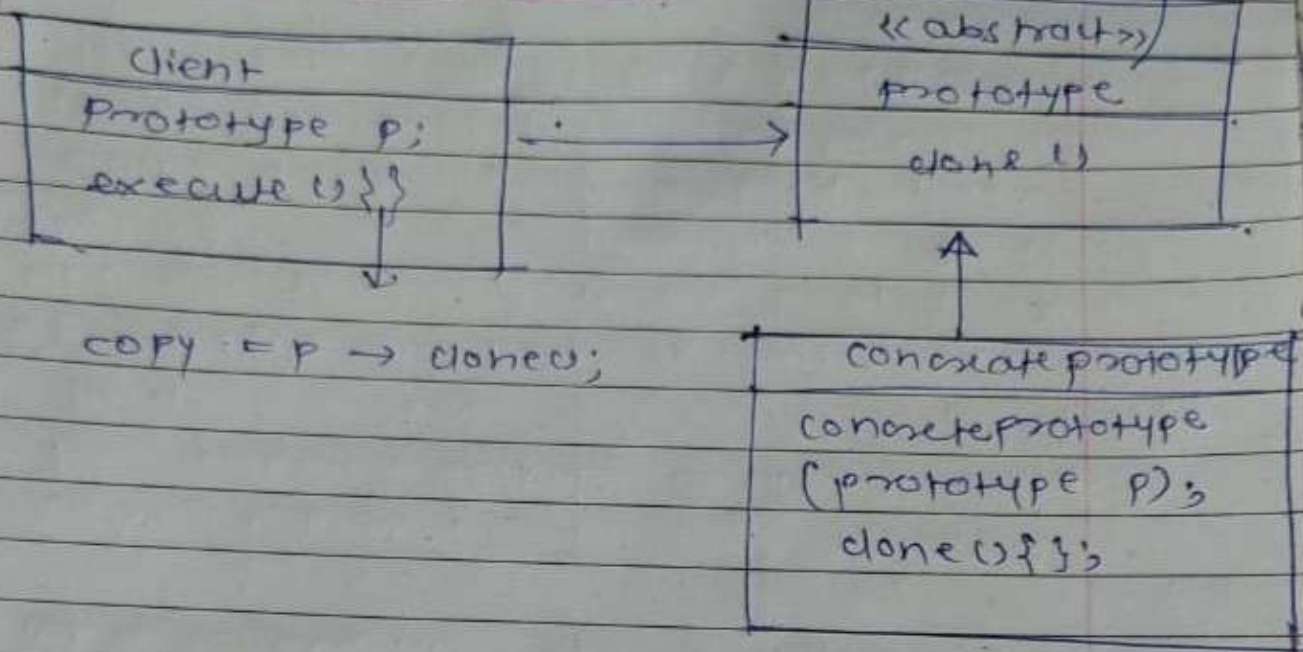 Client
Prototype p;
execute () {}
copy = p → clone();
<<abstract>>
prototype
clone ()
concreate prototype
concreteprototype
(prototype p);
clone () { };